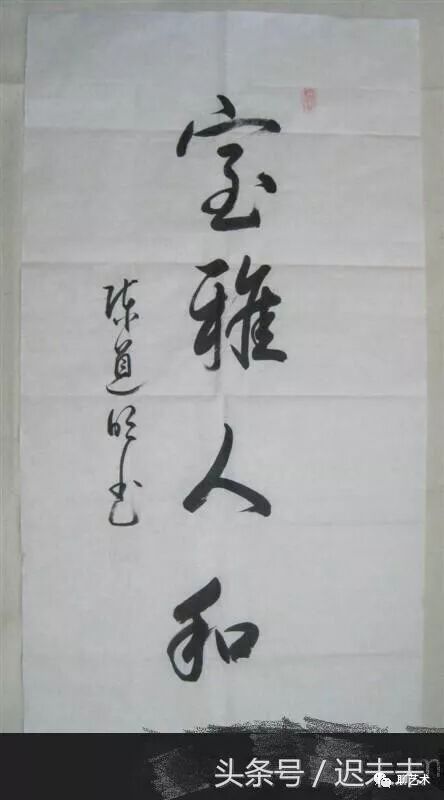 室雅人和
陈道明书
头条号／迟未末
聊艺术